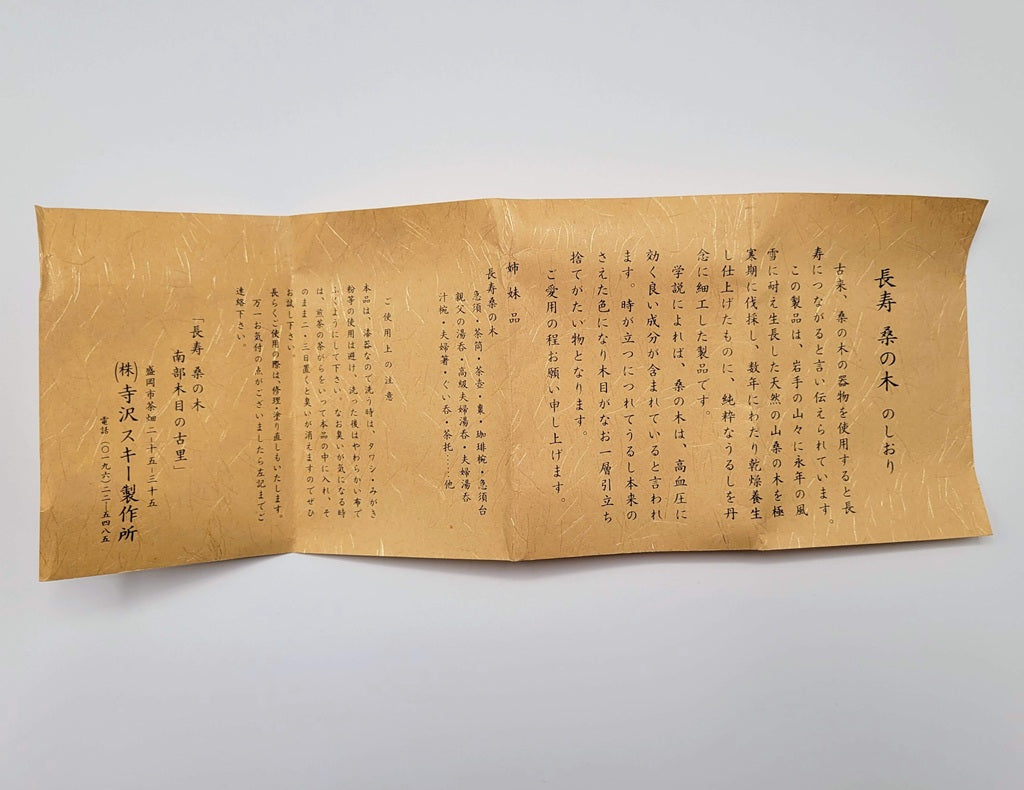 長寿 桑の木 のしおり
古来、桑の木の器物を使用すると長
寿につながると言い伝えられています。
この製品は、岩手の山々に永年の風
雪に耐え生長した天然の山桑の木を極
寒期に伐採し、数年にわたり乾燥養生
し仕上げたものに、純粋なうるしを丹
念に細工した製品です。
学説によれば、桑の木は、高血圧に
効く良い成分が含まれていると言われ
ます。時が立つにつれてうるし本来の
さえた色になり木目がなお一層引立ち
捨てがたい物となります。
ご愛用の程お願い申し上げます。
姉妹品
長寿桑の木
急須・茶筒・茶壺・棗・珈琲椀・急須台
親父の湯呑・高級夫婦湯呑・夫婦湯呑
汁椀・夫婦箸・ぐい呑・茶托……他
。
ご使用上の注意
本品は、漆器なので洗う時は、タワシ・みがき
粉等の使用は避け、洗った後はやわらかい布で
ふくようにして下さい。なお臭いが気になる時
は、煎茶の茶がらをいって本品の中に入れ、そ
のまま二・三日置くと臭いが消えますのでぜひ
お試し下さい。
長らくご使用の際は、修理・塗り直しもいたします。
万一お気付の点がございましたら左記までご
連絡下さい。
「長寿 桑の木
南部木目の古里」
盛岡市茶畑二―十五―三十五
(株)寺沢スキー製作所
電話(〇一九六)二二―五四八五